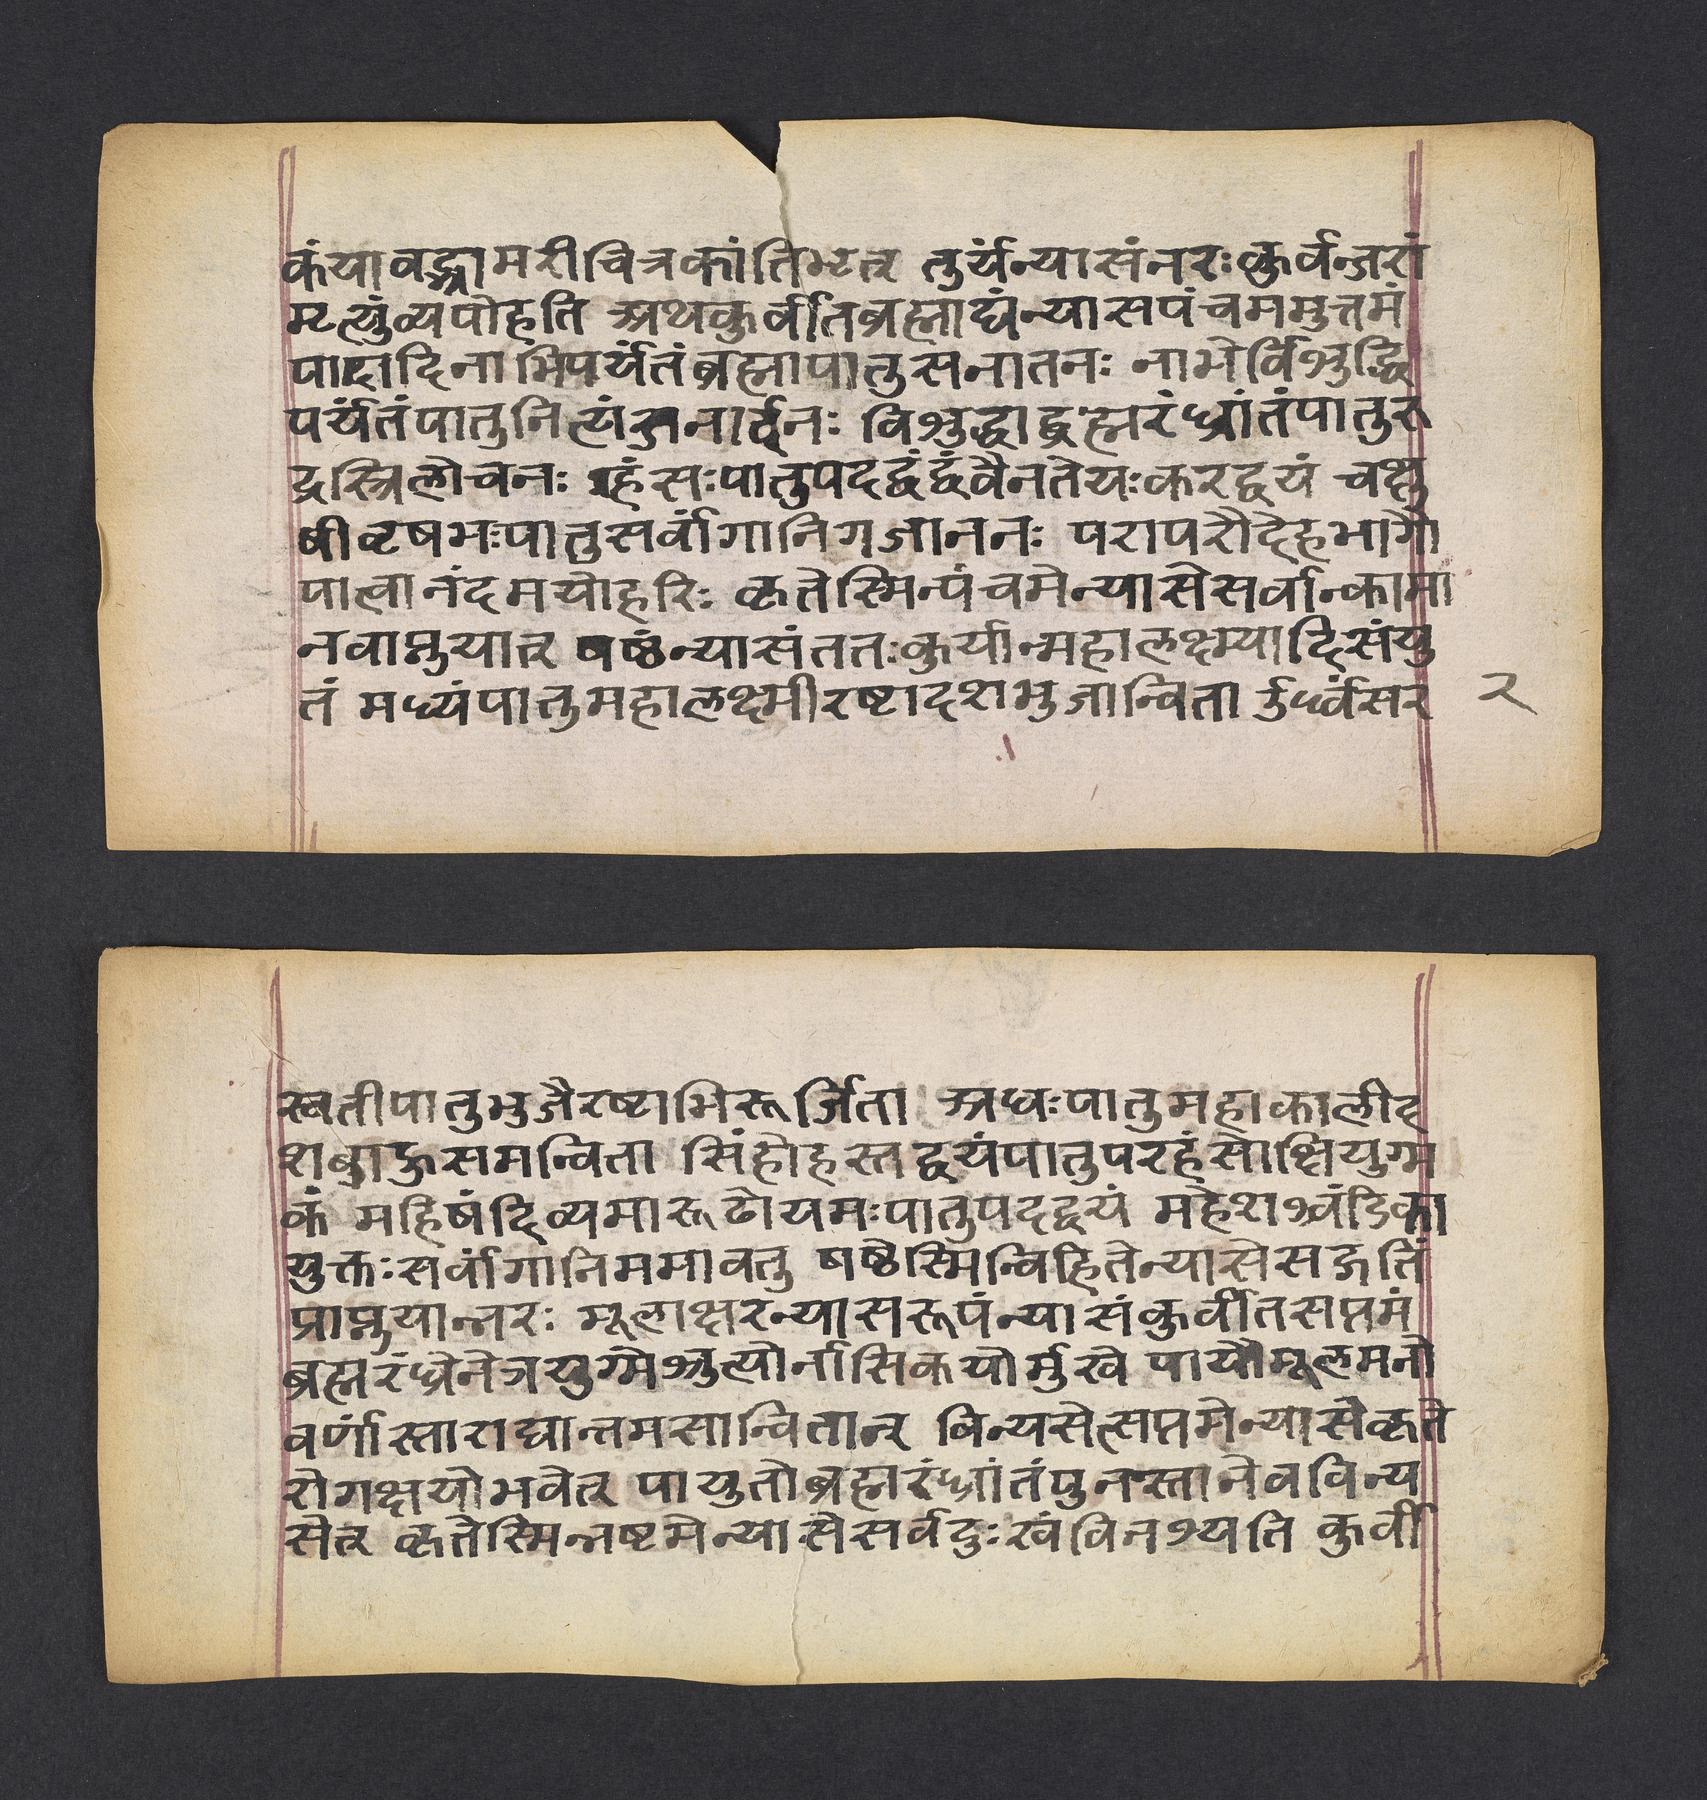 कंयावद्भ्रामरीचित्रकांतिभृत् तुर्यंन्यासंनरःकुर्वन्जरां
मृत्युंव्यपोहति अथकुर्वीतब्रह्माद्यंन्यासपंचममुत्तमं
पादादिनाभिपर्यंतंब्रह्मापातुसनातनः नाभेर्विशुद्धि
पर्यंतंपातुनित्यंजनार्दनः विशुद्धाद्ब्रह्मरंध्रांतंपातुरु
द्रस्त्रिलोचनः हंसःपातुपदद्वंद्वंवैनतेयःकरद्वयं चक्षु
षीवृषभःपातुसर्वांगानिगजाननः परापरौदेहभागौ
पात्वानंदमयोहरिः कृतेस्मिन्पंचमेन्यासेसर्वान्कामा
नवाप्नुयात् षष्ठंन्यासंततःकुर्यान्महालक्ष्म्यादिसंयु
तं मध्यंपातुमहालक्ष्मीरष्टादशभुजान्विता र्ुर्ध्वंसर २
स्वतीपातुभुजैरष्टाभिरूर्जिता अधःपातुमहाकालीद
शबाहुसमन्विता सिंहोहस्तद्वयंपातुपरहंसोक्षियुग्म
कं महिषंदिव्यमारूढोयमःपातुपदद्वयं महेशश्चंडिका
युक्तःसर्वांगानिममावतु षष्ठेस्मिन्विहितेन्यासेसद्गतिं
प्राप्नुयान्नरः मूलाक्षरन्यासरूपंन्यासंकुर्वीतसप्तमं
ब्रह्मरंध्रेनेत्रयुग्मेश्रुत्योर्नासिकयोर्मुखे पायौमूलमनो
वर्णांस्ताराद्यान्तमसान्वितान् विन्यसेत्सप्तमेन्यासेकृते
रोगक्षयोभवेत् पायुतोब्रह्मरंध्रांतंपुनस्तानेवविन्य
सेत् कृतेस्मिन्नष्टमेन्यासेसर्वदुःखंविनश्यति कुर्वी